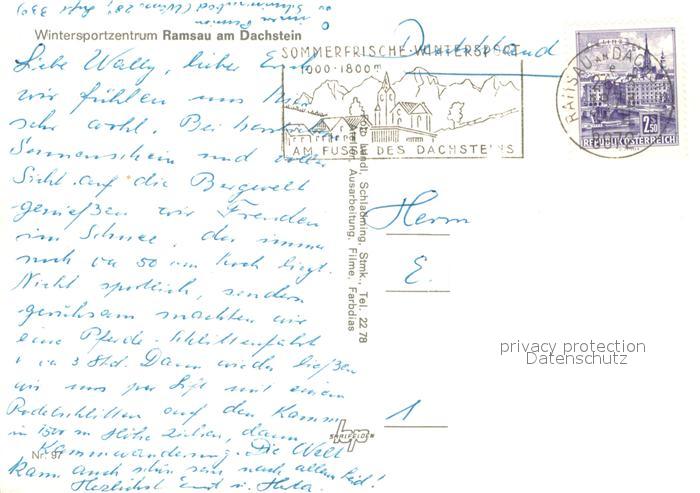 Wintersportzentrum Ramsau am Dachstein
SOMMERFRISCHE-WINTERSPORT
1000-1800m
AM FUSSE DES DACHSTEINS
RAMSAU AM DACHSTEIN
2.50
REPUBLIK ÖSTERREICH
Deutschland
Liebe Wally, lieber
wir fühlen uns hier
sehr wohl. Bei
Sonnenschein und
Sicht auf die Bergwelt
genießen wir Freuden
im Schnee, der immer
noch ca 50 cm hoch liegt.
Nicht sportlich, sondern
geruhsam machten wir
eine Pferde-Schlittenfahrt
ca 3 Std. Dann wieder ließen
wir uns per Lift mit einem
Rodelschlitten auf den Kamm
in 1500 m Höhe ziehen, dann
Kammwanderung. Die Welt
kann auch schön sein nach allem Leid!
Herzlichst
Lundi, Schladming, Stmk., Tel. 22 78
Ausarbeitung, Filme, Farbdias
Herrn
E.
1
privacy protection
Datenschutz
bp
Nr. 97